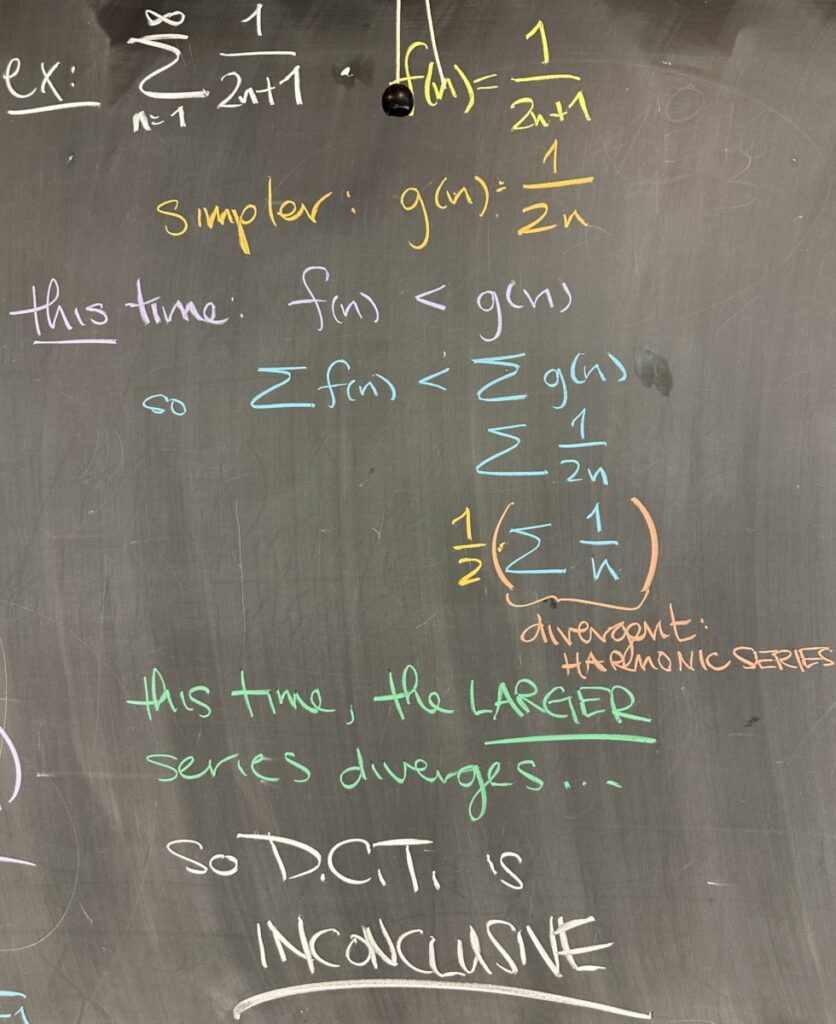 ex: ∞ ∑ n=1 1/2n+1 . f(n)= 1/2n+1
simpler: g(n)= 1/2n
this time: f(n) < g(n)
so ∑ f(n) < ∑ g(n)
∑ 1/2n
1/2 (∑ 1/n)
divergent:
HARMONIC SERIES
this time, the LARGER
series diverges...
SO D.C.T. is
INCONCLUSIVE